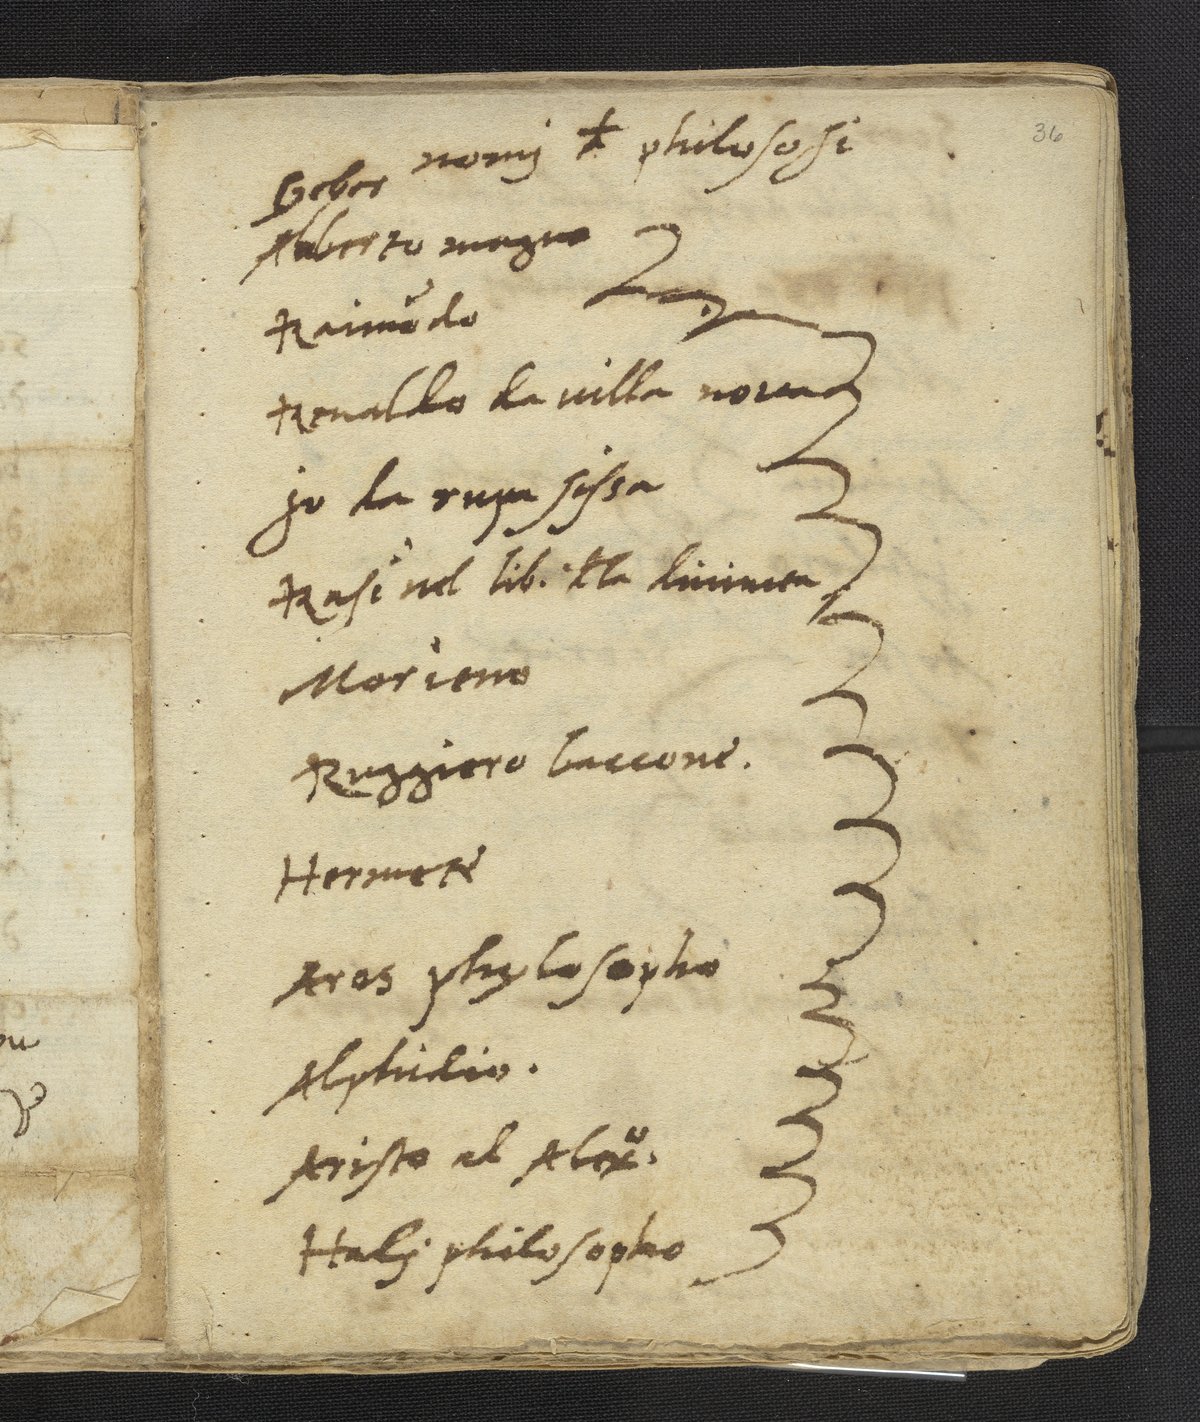 36
nomj đ philosofi
Geber
Alberto magno
Raimūdo
Renaldo da villa nova
jo da rupa sissa
Rasi nel lib. đla
Morieno
Ruggiero baccone.
Hermete
Aros phylosopho
Alphidio.
Aristo al Alex.
Halj philosopho